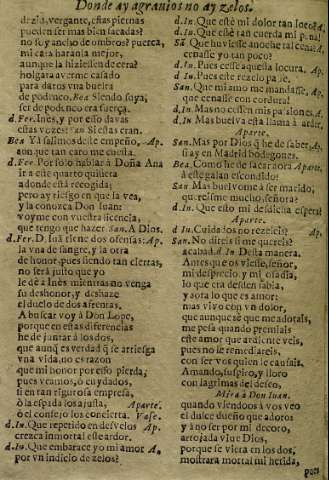 Donde ay agrauios no ay zelos.
dezia, vergante, estas piernas
pueden ser mas bien sacadas?
no soy ancho de ombros? puerca,
mi cara hara nla mejor,
aunque la hiziessen de cera?
holgara averme casado
para daros vna buelta
de podenco. Bea. Siendo suya,
ser de podenco era fuerça.
d. Fer. Ines, y por esso davas
estas vozes? San. Si estas eran.
Bea. Yà salimos deste empeño, Ap.
aun que tan caro me cuesta.
d. Fer. Por solo hablar à Doña Ana
ir a este quarto quisiera
adonde està recogida;
pero ay riesgo en que la vea,
y la conozca Don Iuan:
voyme con vuestra licencia,
que tengo que hazer. San. A Dios.
d. Fer. D. Iuã tiene dos ofensas: Ap.
la vna de sangre, y la otra
de honor, pues siendo tan ciertas,
no serà justo que yo
le dè a Inès mientras no venga
su deshonor, y deshaze
el duelo de dos afrentas.
A buscar voy à Don Lope,
porque en estas diferencias
he de juntar à los dos,
que aunq̃ es verdad q̃ se arriesga
vna vida, no es razon
que mi honor por esso pierda;
pues veamos, ò cuydados,
si en tan rigurosa empresa,
ò la espada los ajusta, Aparte.
ò el consejo los concierta. Vase.
d. In. Que repetido en desvelos Ap.
crezca inmortal este ardor.
d. In. Que embarace yo mi amor Ap.
por vn indicio de zelos?
d. In. Que estè mi dolor tan loco! A.
d. In. Que estè tan cuerda mi pena!
Sã. Que huviesse anoche tal cena! A.
cenasse yo tan poco?
d. In. Pues cesse aquesta locura. Ap.
d. In. Pues este rezelo passe.
San. Que mi amo me mandasse, Ap.
que cenasse con cordura!
d. In. Mas no cessen mis passiones. A.
d. In. Mas buelva esta llama à arder,
Aparte.
San. Mas por Dios q̃ he de saber, Ap.
si ay en Madrid bodegones.
Bea. Como he de sacar aora Aparte.
à este galan escondido!
San Mas buelvome à ser marido,
que resisme mucho, señora?
d. In. Que esto mi desdicha espera!
Aparte.
d. In. Cuidados no rezeleis? Ap.
San. No direis si me quereis?
acabad. d In Desta manera.
Antes que os viesse, señor,
mi desprecio, y mi osadia,
lo que era desden sabia,
y aora lo que es amor:
mas vivo con vn dolor,
que aunque sè que me adorais,
me pesa quando premiais
este amor que ardiente veis,
pues no le remediareis,
con ser vos quien le causais.
Amando, suspiro, y lloro
con lagrimas del deseo,
Mira à Don Iuan.
quando viendoos à vos veo
el dulce dueño que adoro;
y à no ser por mi decoro,
arrojada viue Dios,
porque se viera en los dos,
mostrara mortal mi herida,
pues